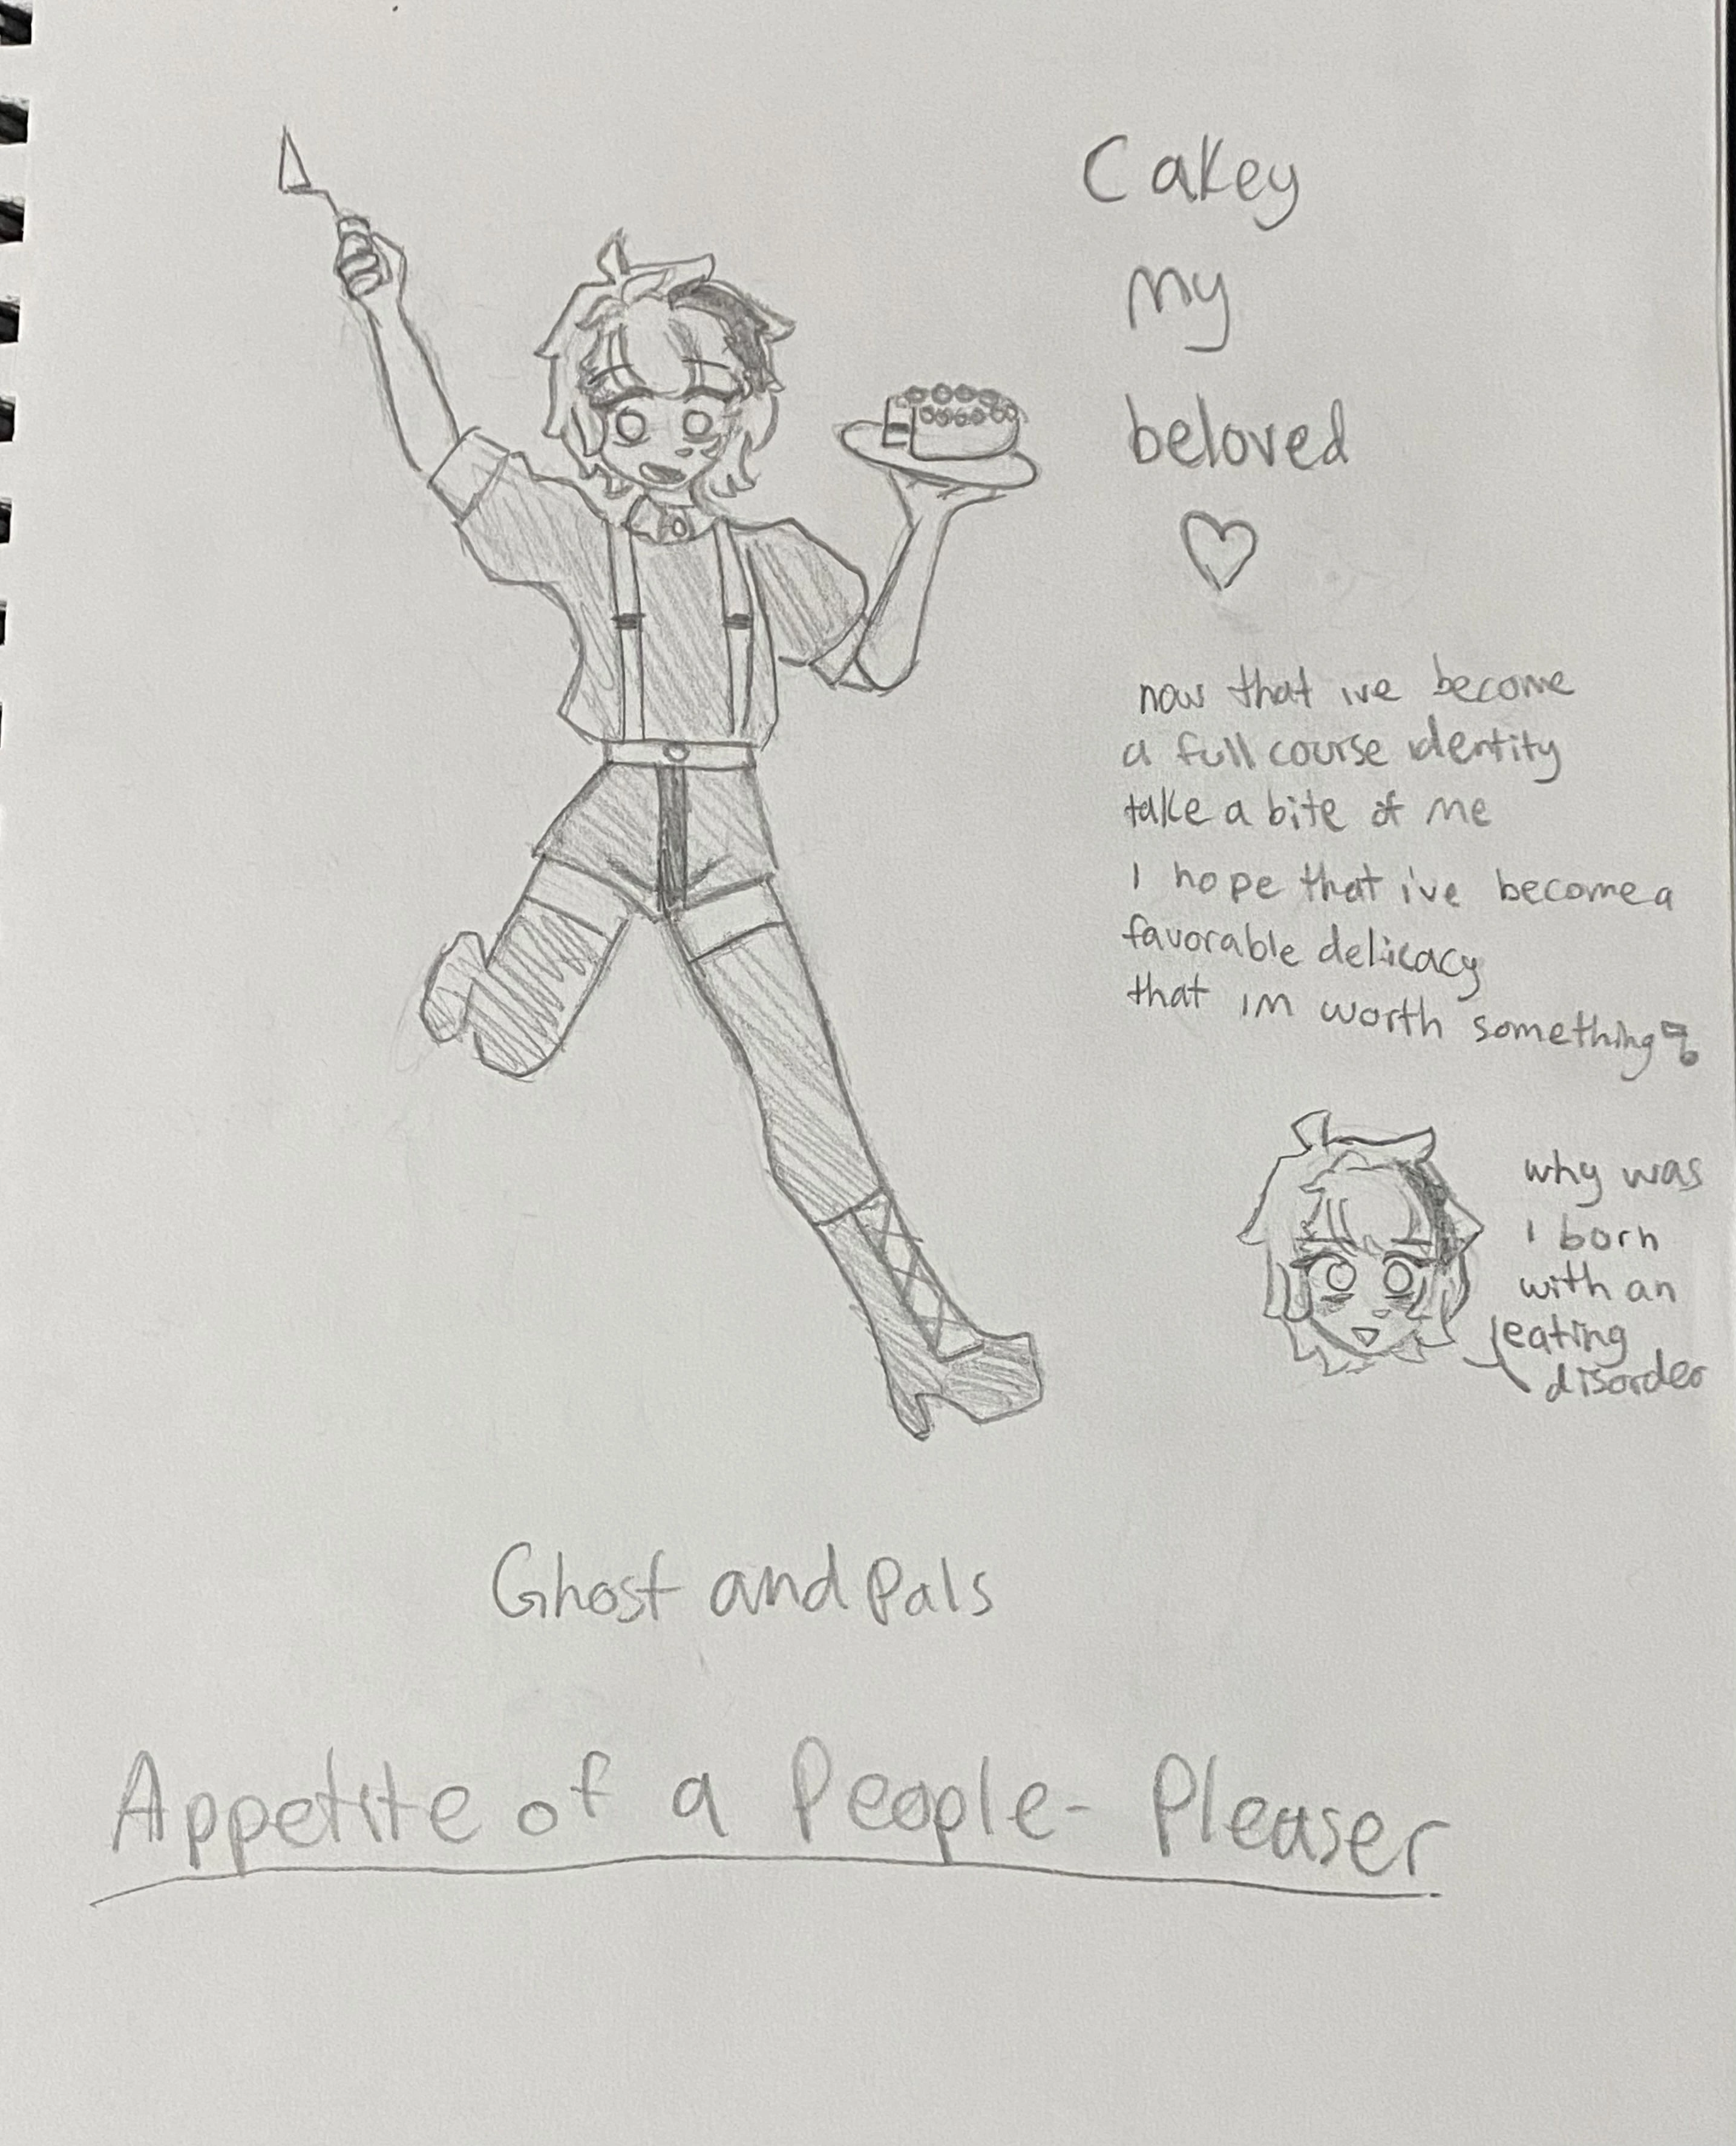 Cakey
my
beloved
now that ive become
a full course identity
take a bite of me
I hope that i've become a
favorable delicacy
that im worth something
why was
I born
with an
eating
disorder
Ghost and Pals
Appetite of a People-Pleaser